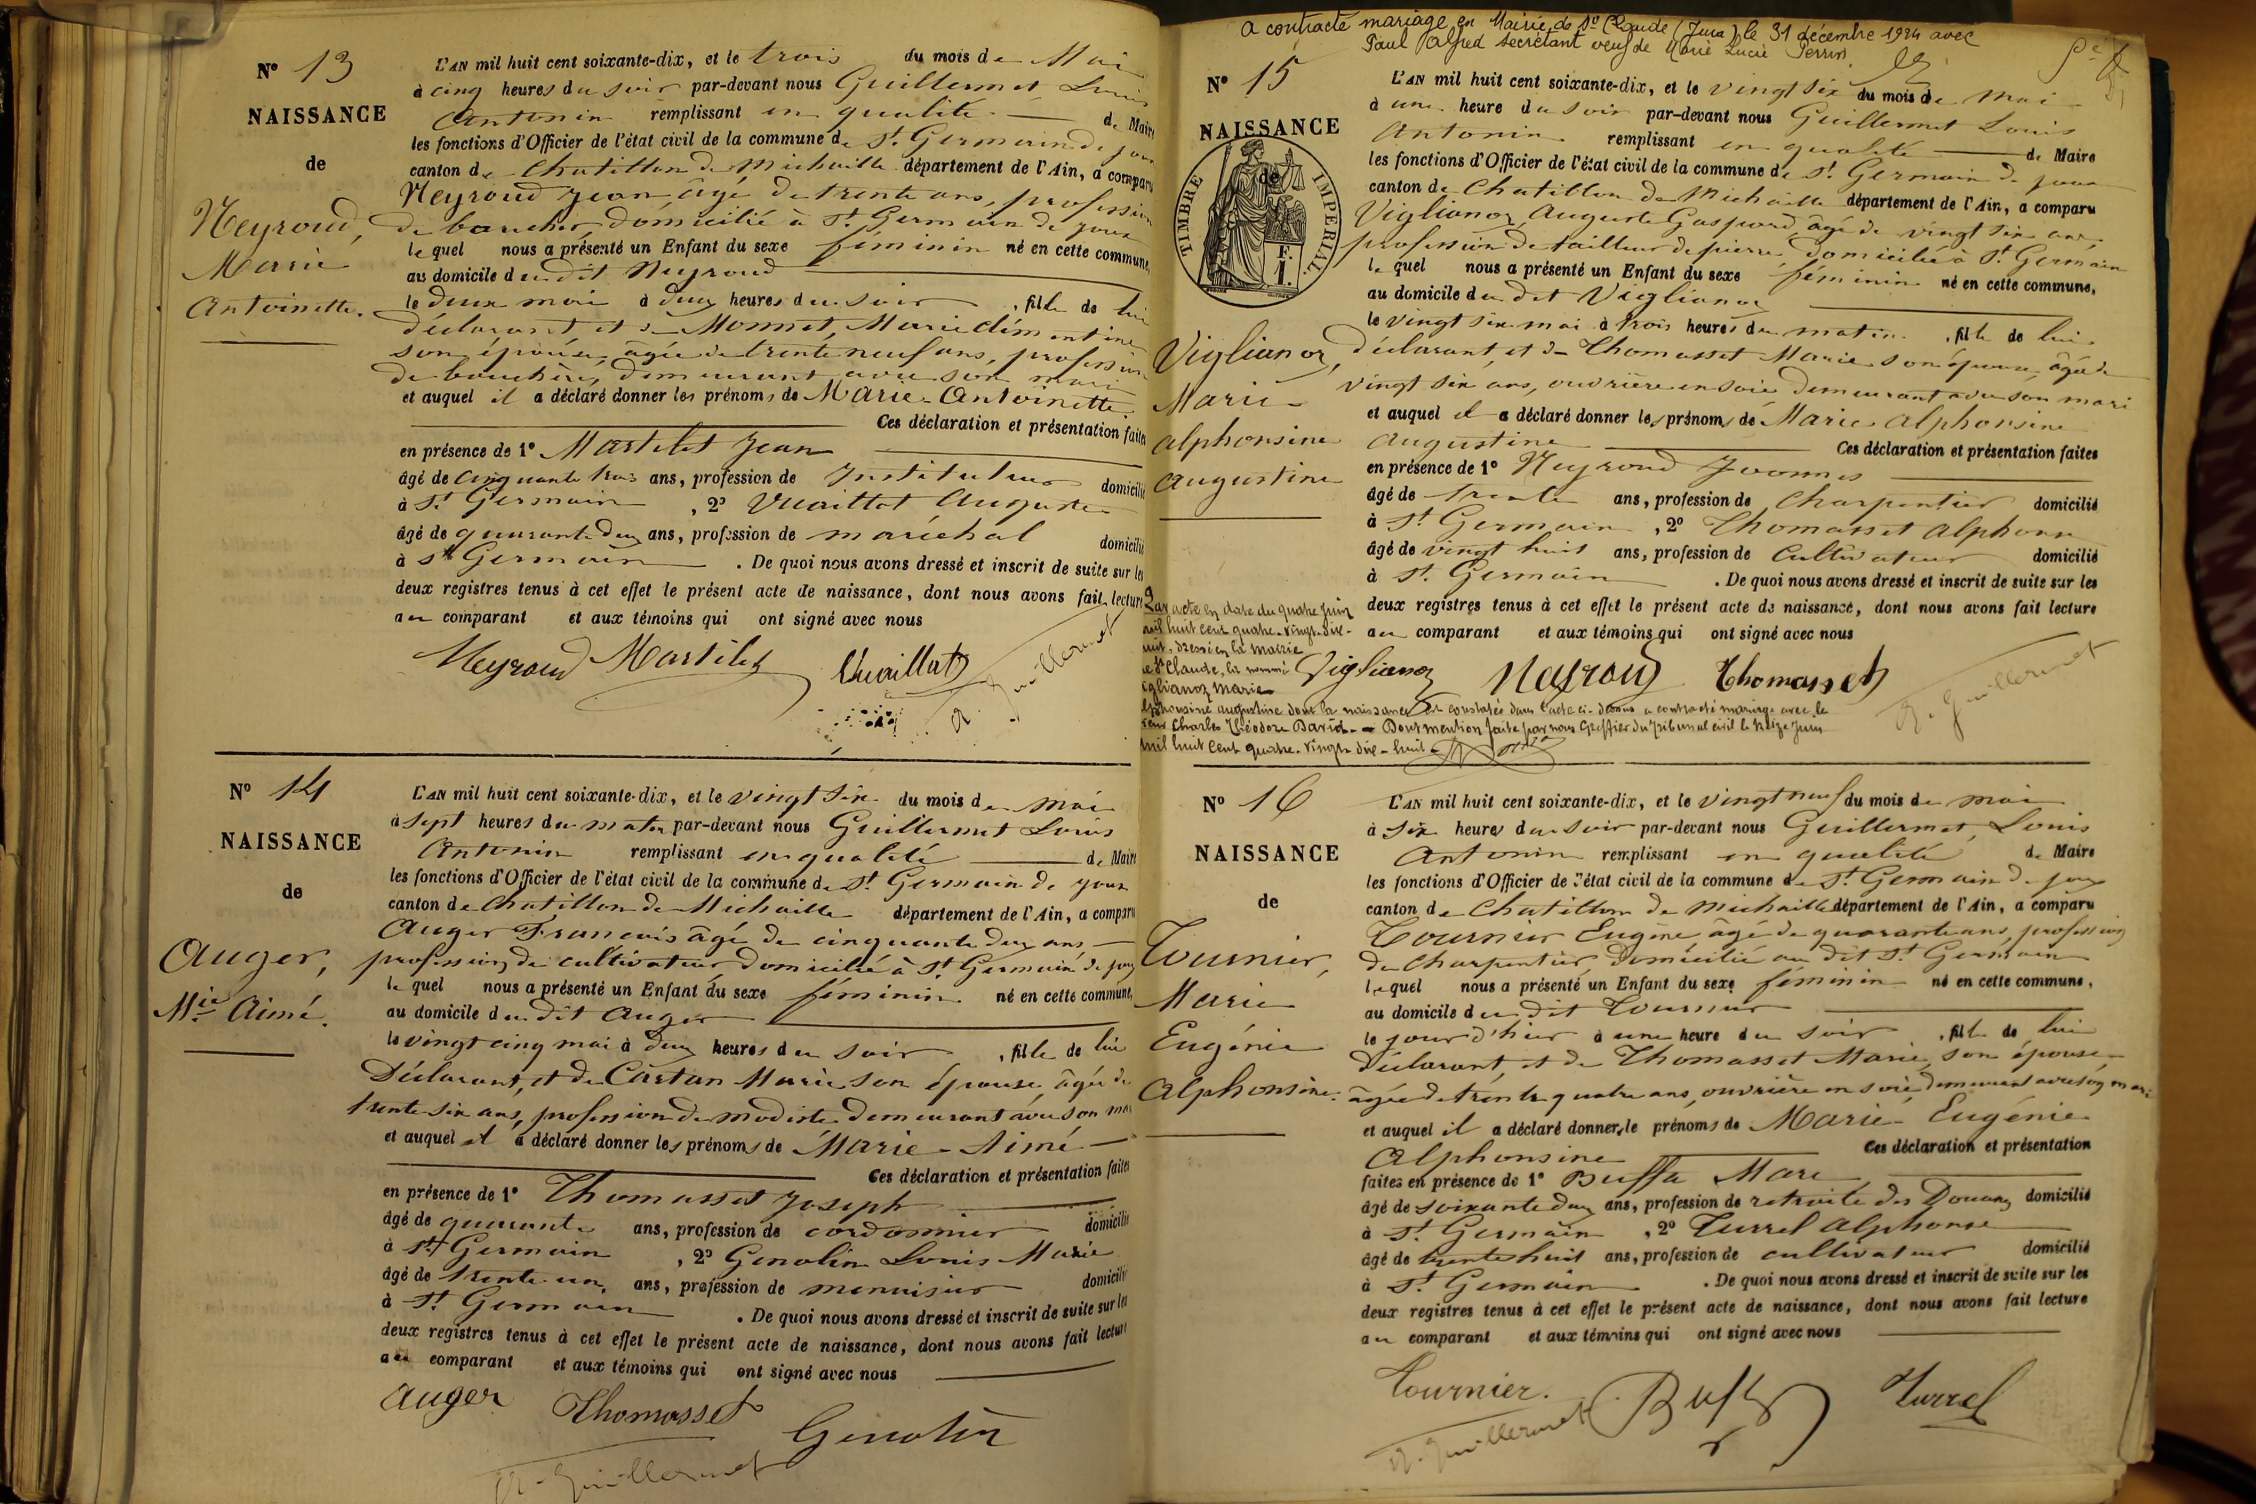 N° 13
NAISSANCE
de
Neyroud,
Marie
Antoinette.
L'AN mil huit cent soixante-dix, et le trois du mois de Mai
à cinq heures du soir par-devant nous Guillermet, Louis
Antonin remplissant en qualité de Maire
les fonctions d'Officier de l'état civil de la commune de St Germain de joux
canton de Chatillon de Michaille département de l'Ain, a comparu
Neyroud Jean, âgé de trente ans, profession
de boucher, domicilié à St Germain de joux
le quel nous a présenté un Enfant du sexe féminin né en cette commune,
au domicile du dit Neyroud
le deux mai à deux heures du soir, fille de lui
déclarant et de Monnet, Marie clémentine
son épouse, âgée de trente neuf ans, profession
de bouchère, demeurant avec son mari
et auquel il a déclaré donner les prénoms de Marie-Antoinette.
Ces déclaration et présentation faites
en présence de 1° Martelet Jean
âgé de cinquante trois ans, profession de Instituteur domicilié
à St Germain, 2° Vuaillat Auguste
âgé de quarante deux ans, profession de maréchal domicilié
à St Germain. De quoi nous avons dressé et inscrit de suite sur les
deux registres tenus à cet effet le présent acte de naissance, dont nous avons fait lecture
au comparant et aux témoins qui ont signé avec nous
Neyroud Martelet Vuaillat
A. Guillermet
N° 14
NAISSANCE
de
Auger,
Mie Aimé.
L'AN mil huit cent soixante-dix, et le vingt six du mois de mai
à sept heures du matin par-devant nous Guillermet Louis
Antonin remplissant en qualité de Maire
les fonctions d'Officier de l'état civil de la commune de St Germain de joux
canton de Chatillon de Michaille département de l'Ain, a comparu
Auger Francois âgé de cinquante deux ans
profession de cultivateur domicilié à St Germain de joux
le quel nous a présenté un Enfant du sexe féminin né en cette commune,
au domicile du dit Auger
le vingt cinq mai à deux heures du soir, fille de lui
Déclarant, et de Cartan Marie son épouse, âgée de
trente six ans, profession de modiste demeurant avec son mari
et auquel il a déclaré donner les prénoms de Marie-Aimé
Ces déclaration et présentation faites
en présence de 1° Thomasset Joseph
âgé de quarante ans, profession de cordonnier domicilié
à St Germain, 2° Genolin Louis Marie
âgé de trente un ans, profession de menuisier domicilié
à St Germain. De quoi nous avons dressé et inscrit de suite sur les
deux registres tenus à cet effet le présent acte de naissance, dont nous avons fait lecture
au comparant et aux témoins qui ont signé avec nous
Auger Thomasset Genolin
A. Guillermet
a contracté mariage en Mairie de St Claude (Jura) le 31 décembre 1924 avec
Paul Alfred Secrétant veuf de Marie Lucie Perrin.
N° 15
NAISSANCE
de
TIMBRE IMPERIAL.
F.
1.
Viglianoz,
Marie
Alphonsine
Augustine
L'AN mil huit cent soixante-dix, et le vingt six du mois de mai
à une heure du soir par-devant nous Guillermet Louis
Antonin remplissant en qualité de Maire
les fonctions d'Officier de l'état civil de la commune de St Germain de joux
canton de Chatillon de Michaille département de l'Ain, a comparu
Viglianoz, Auguste Gaspard, âgé de vingt six ans,
profession de tailleur de pierre domicilié à St Germain
le quel nous a présenté un Enfant du sexe féminin né en cette commune,
au domicile du dit Viglianoz
le vingt six mai à trois heures du matin, fille de lui
déclarant, et de Thomasset Marie son épouse, âgée de
vingt six ans, ouvrière en soie, demeurant avec son mari
et auquel il a déclaré donner les prénoms de Marie Alphonsine
Augustine Ces déclaration et présentation faites
en présence de 1° Neyroud Yvonnes
âgé de trente ans, profession de charpentier domicilié
à St Germain, 2° Thomasset Alphonse
âgé de vingt huit ans, profession de cultivateur domicilié
à St Germain. De quoi nous avons dressé et inscrit de suite sur les
deux registres tenus à cet effet le présent acte de naissance, dont nous avons fait lecture
au comparant et aux témoins qui ont signé avec nous
Viglianoz Neyroud Thomasset
A. Guillermet
Par acte en date du quatre juin
mil huit cent quatre-vingt-dix-
huit, dressé en la mairie
de St Claude, la nommée
Viglianoz Marie
Alphonsine Augustine dont la naissance est constatée dans l'acte ci-dessus a contracté mariage avec le
sieur Charles Théodore David. Pour mention faite par nous Greffier du Tribunal civil le treize juin
mil huit cent quatre-vingt-dix-huit
N° 16
NAISSANCE
de
Tournier,
Marie
Eugénie
Alphonsine.
L'AN mil huit cent soixante-dix, et le vingt neuf du mois de mai
à six heures du soir par-devant nous Guillermet, Louis
Antonin remplissant en qualité de Maire
les fonctions d'Officier de l'état civil de la commune de St Germain de joux
canton de Chatillon de Michaille département de l'Ain, a comparu
Tournier Eugène âgé de quarante ans, profession
de charpentier, domicilié au dit St Germain
le quel nous a présenté un Enfant du sexe féminin né en cette commune,
au domicile du dit Tournier
le jour d'hier à une heure du soir, fille de lui
Déclarant, et de Thomasset Marie, son épouse,
âgée de trente quatre ans, ouvrière en soie, demeurant avec son mari
et auquel il a déclaré donner le prénoms de Marie Eugénie
Alphonsine Ces déclaration et présentation
faites en présence de 1° Buffa Marc
âgé de soixante deux ans, profession de retraité des Douanes domicilié
à St Germain, 2° Turrel Alphonse
âgé de trente huit ans, profession de cultivateur domicilié
à St Germain. De quoi nous avons dressé et inscrit de suite sur les
deux registres tenus à cet effet le présent acte de naissance, dont nous avons fait lecture
au comparant et aux témoins qui ont signé avec nous
Tournier. Buffa Turrel
A. Guillermet